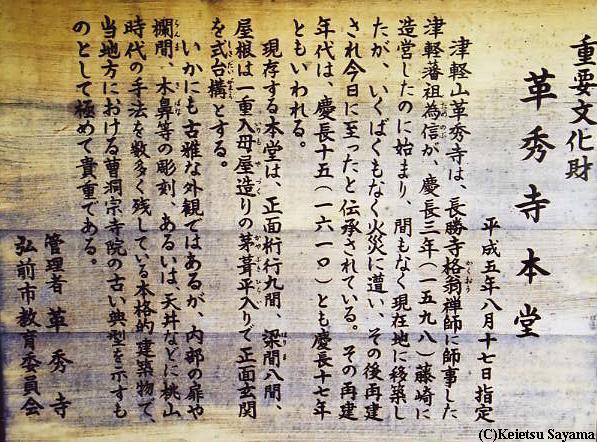 重要文化財
革秀寺本堂
平成五年八月十七日指定
津軽山革秀寺は、長勝寺格翁禅師に師事した
かくおう
津軽藩祖為信が、慶長三年(一五九八)藤崎に
ためのぶ
造営したのに始まり、間もなく現在地に移築し
たが、いくばくもなく火災に遭い、その後再建
され今日に至ったと伝承されている。その再建
年代は、慶長十五(一六一〇)とも慶長十七年
ともいわれる。
現存する本堂は、正面桁行九間、梁間八間、
はりま
屋根は一重入母屋造りの茅葺平入りで正面玄関
を式台構とする。
いかにも古雅な外観ではあるが、内部の扉や
欄間、木鼻等の彫刻、あるいは、天井などに桃山
らんま きばな
時代の手法を数多く残している本格的建築物で、
当地方における曹洞宗寺院の古い典型を示すも
のとして極めて貴重である。
管理者 革秀寺
弘前市教育委員会
(C)Keietsu Sayama